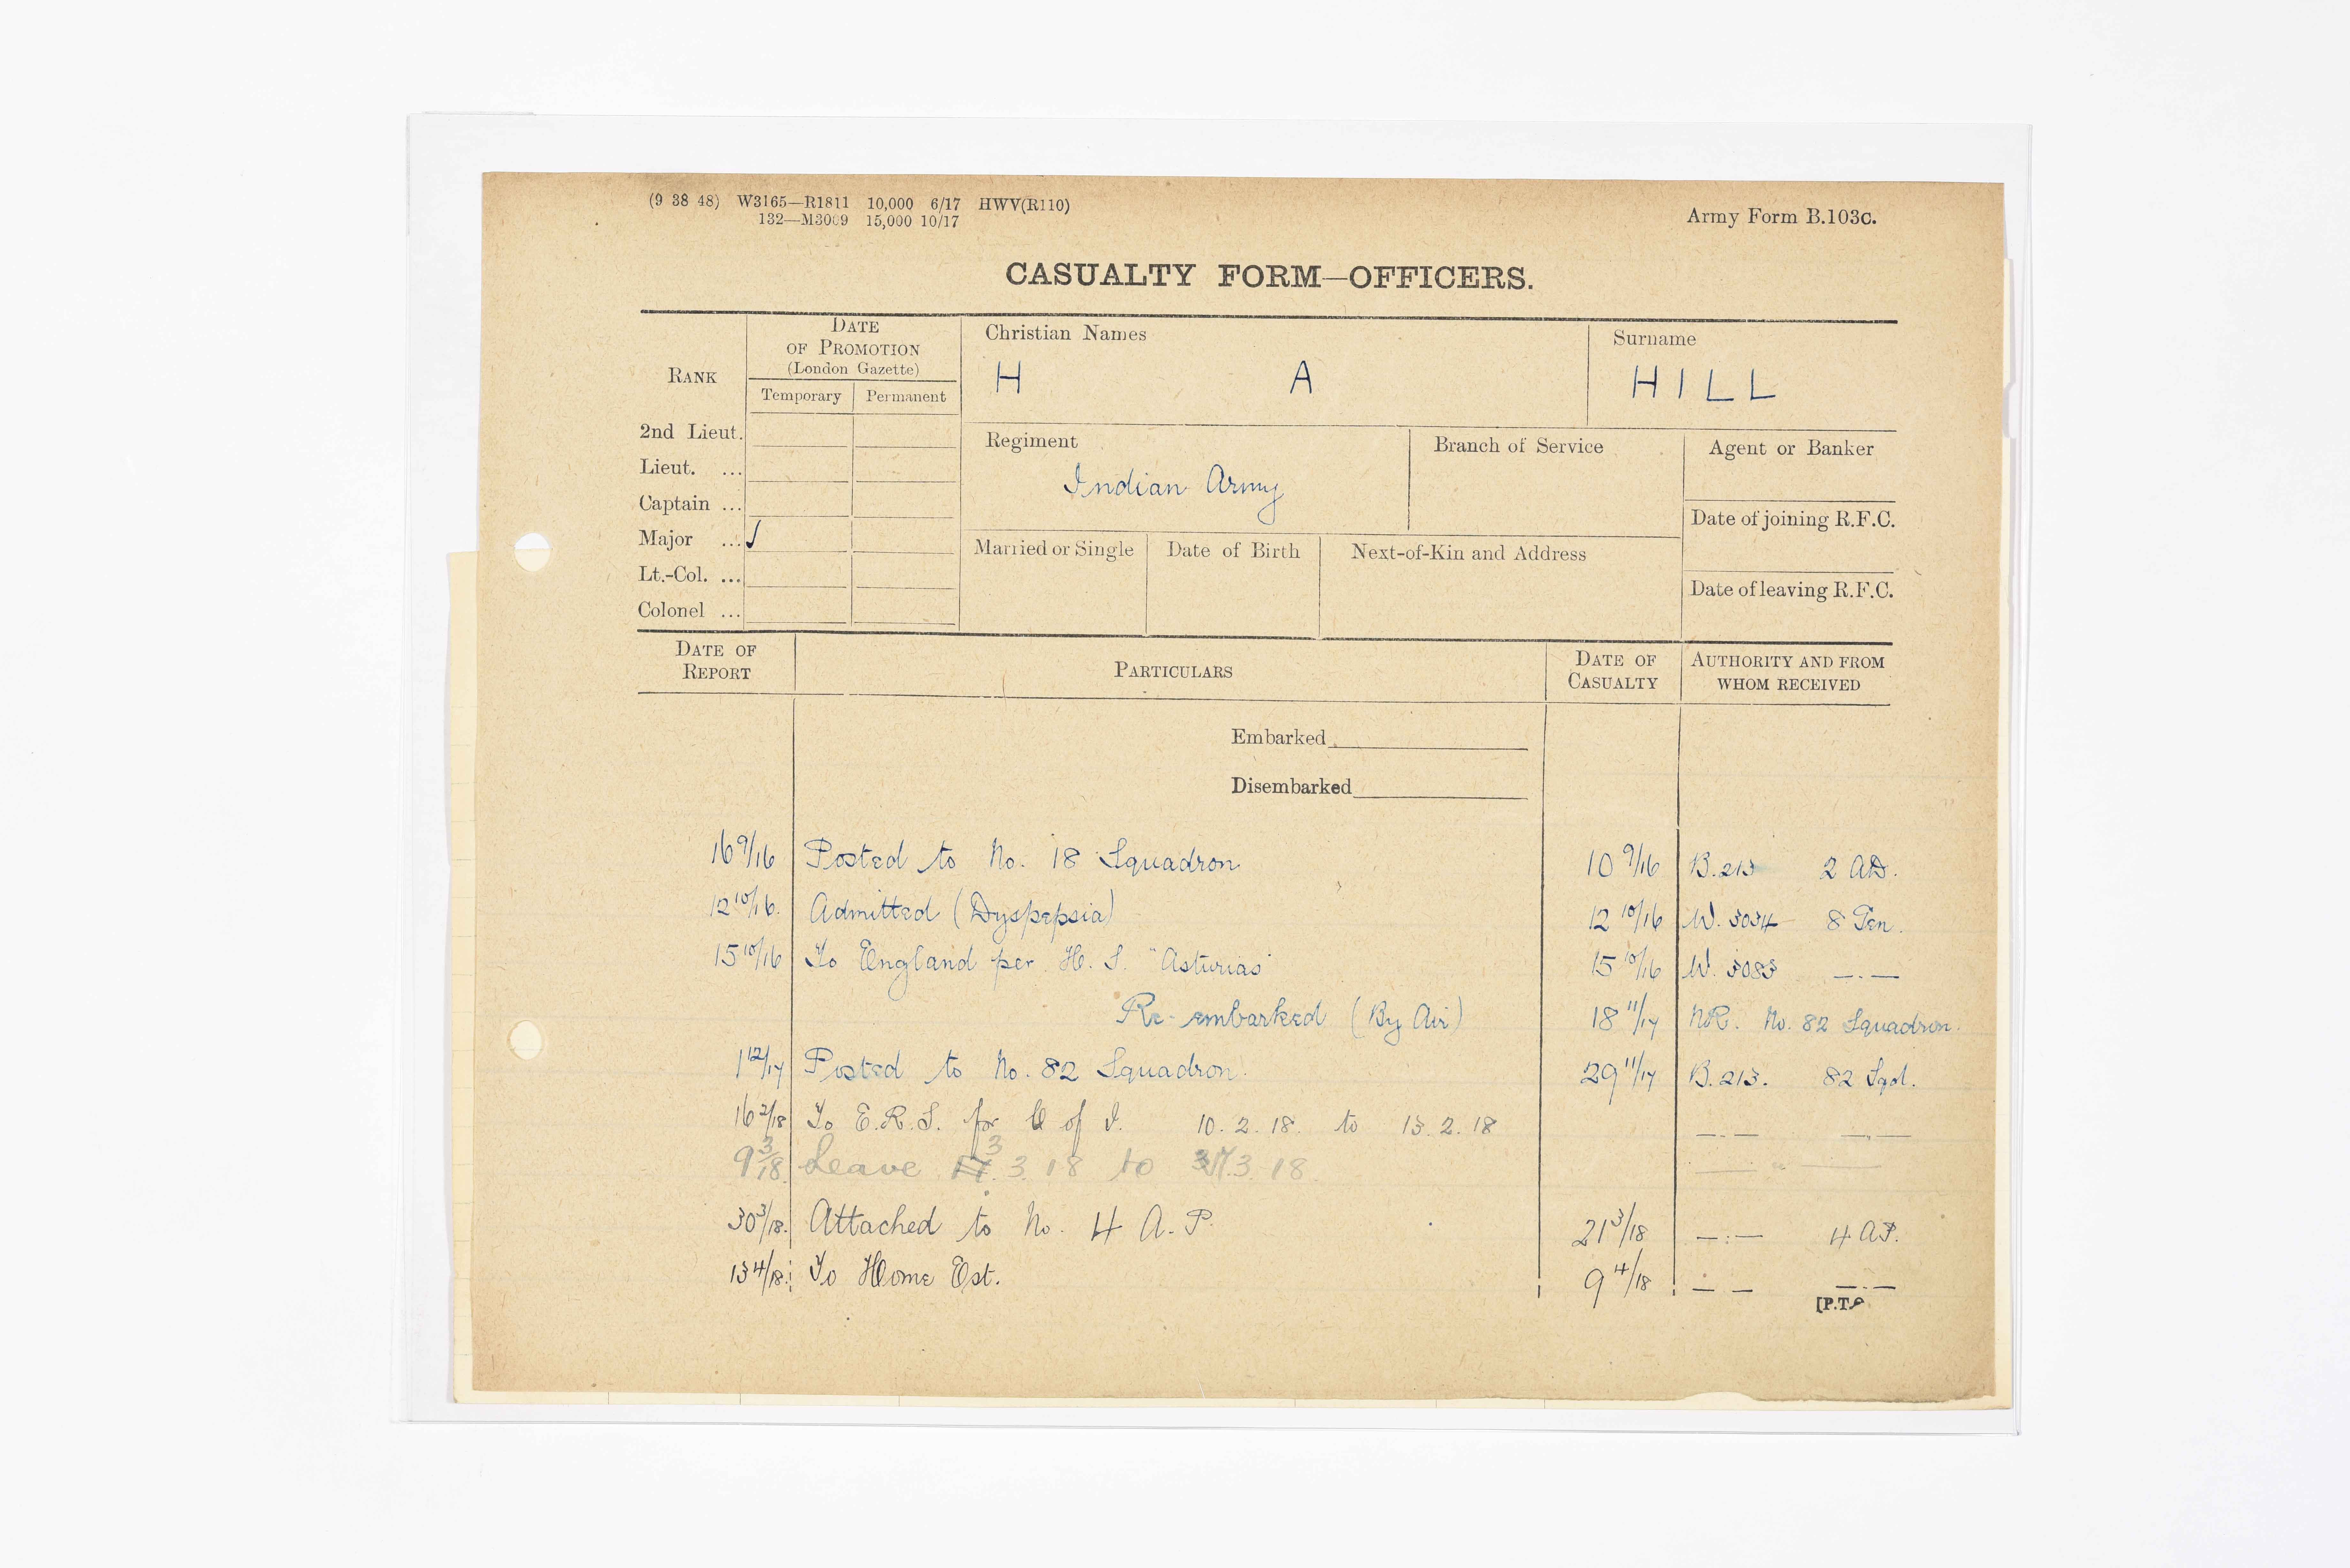 (9 38 48) W3165—R1811 10,000 6/17 HWV(R110)
132—M3009 15,000 10/17
Army Form B.103c.
CASUALTY FORM—OFFICERS.
RANK
DATE OF PROMOTION (London Gazette)
Temporary Permanent
Christian Names
H A
Surname
HILL
2nd Lieut.
Lieut. ...
Captain ...
Major ... ✓
Lt.-Col. ...
Colonel ...
Regiment
Indian Army
Branch of Service
Agent or Banker
Date of joining R.F.C.
Date of leaving R.F.C.
Married or Single
Date of Birth
Next-of-Kin and Address
DATE OF REPORT
PARTICULARS
DATE OF CASUALTY
AUTHORITY AND FROM WHOM RECEIVED
Embarked
Disembarked
16 9/16 Posted to No. 18 Squadron 10 9/16 B.213 2 AD.
12 10/16. Admitted (Dyspepsia) 12 10/16 W. 3034 8 Gen.
15 10/16 To England per H. S. "Asturias" 15 10/16 W. 3083 —.—
Re-embarked (By Air) 18 11/17 NR. No. 82 Squadron.
1 12/17 Posted to No. 82 Squadron. 29 11/17 B.213. 82 Sqd.
16 2/18 To E.R.S. for C of I. 10.2.18. to 13.2.18 —.— —.—
9 3/18. Leave 3.3.18 to 17.3.18 — " —
30 3/18. Attached to No. 4 A.P. 21 3/18 —:— 4 AP.
13 4/18. To Home Est. 9 4/18 — — —.—
[P.T.O